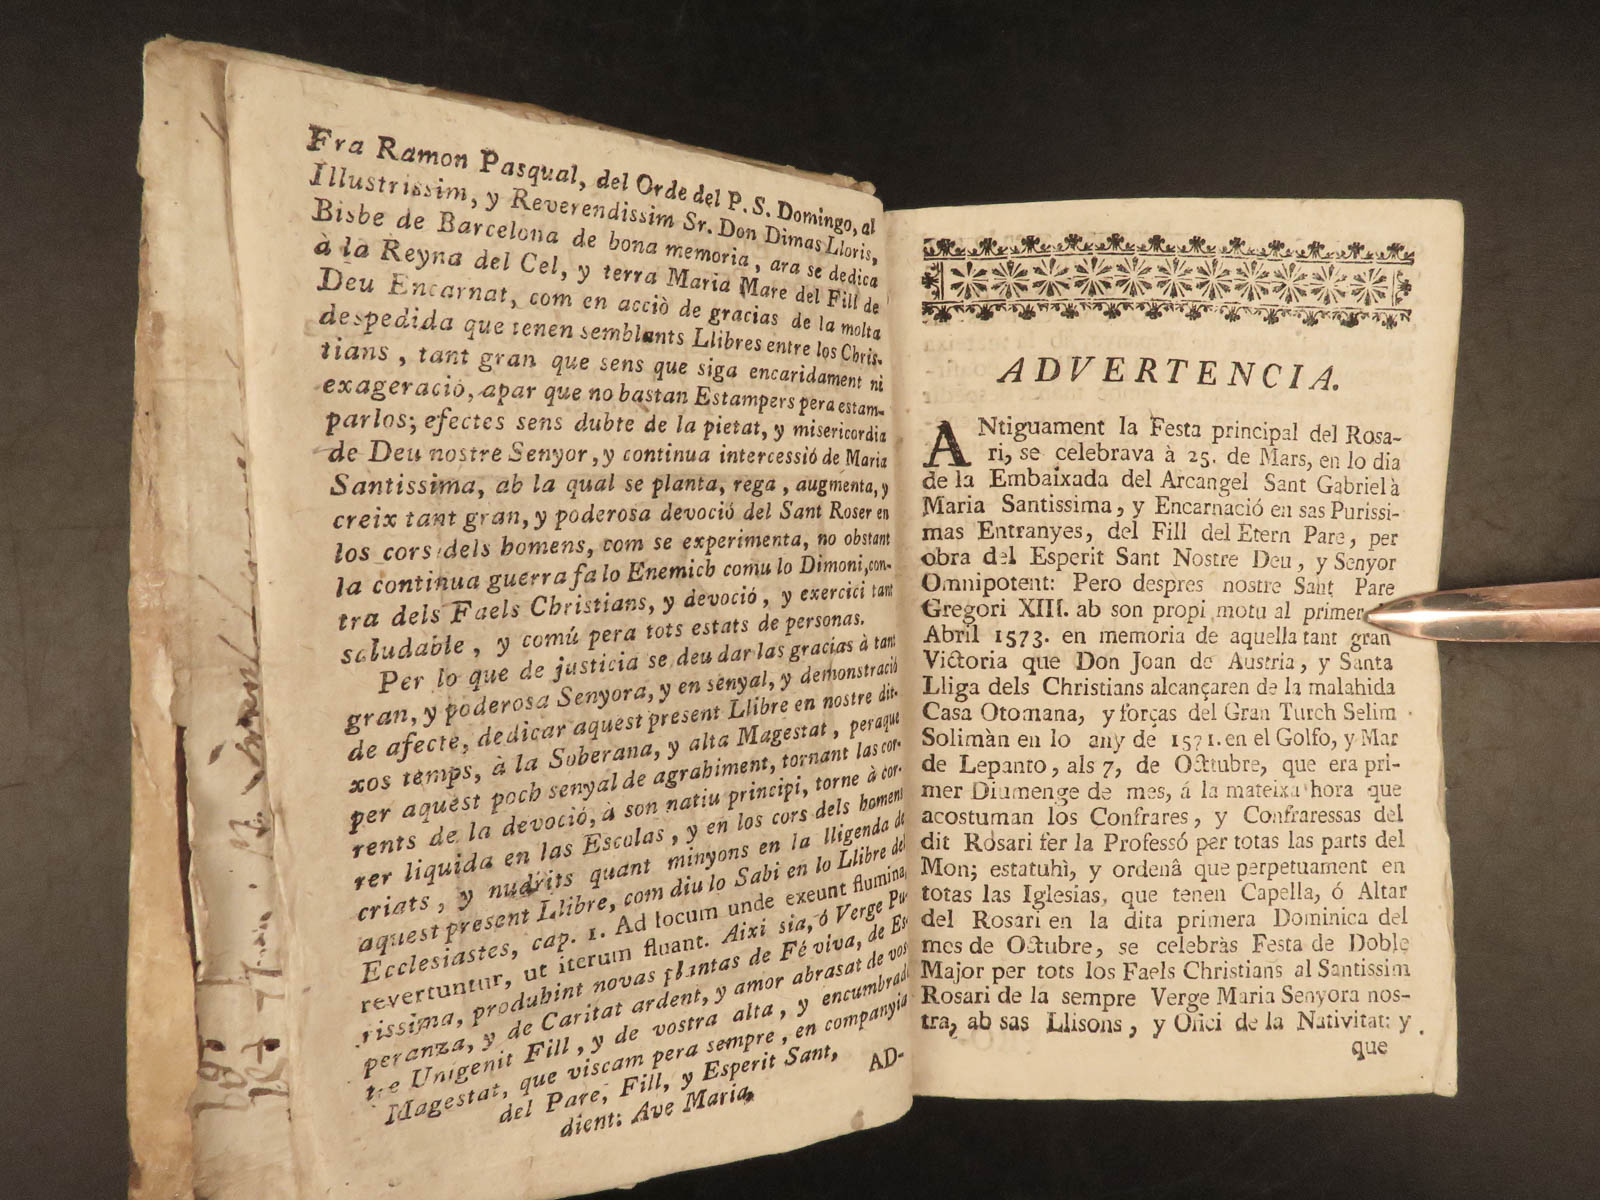 Fra Ramon Pasqual, del Orde del P. S. Domingo, al
Illustrissim, y Reverendissim Sr. Don Dimas Lloris,
Bisbe de Barcelona de bona memoria, ara se dedica
à la Reyna del Cel, y terra Maria Mare del Fill de
Deu Encarnat, com en acciò de gracias de la molta
despedida que tenen semblants Llibres entre los Chris-
tians, tant gran que sens que siga encaridament ni
exageraciò, apar que no bastan Estampers pera estam-
parlos; efectes sens dubte de la pietat, y misericordia
de Deu nostre Senyor, y continua intercessió de Maria
Santissima, ab la qual se planta, rega, augmenta, y
creix tant gran, y poderosa devoció del Sant Roser en
los cors dels homens, com se experimenta, no obstant
la continua guerra fa lo Enemich comu lo Dimoni, con-
tra dels Faels Christians, y devoció, y exercici tant
saludable, y comú pera tots estats de personas.
Per lo que de justicia se deu dar las gracias à tant
gran, y poderosa Senyora, y en senyal, y demonstració
de afecte, dedicar aquest present Llibre en nostre dit-
xos temps, à la Soberana, y alta Magestat, peraque
per aquest poch senyal de agrahiment, tornant las cor-
rents de la devoció, à son natiu principi, torne à cor-
rer liquida en las Escolas, y en los cors dels homens
criats, y nudrits quant minyons en la lligenda de
aquest present Llibre, com diu lo Sabi en lo Llibre del
Ecclesiastes, cap. 1. Ad locum unde exeunt flumina,
revertuntur, ut iterum fluant. Aixi sia, ó Verge Pu-
rissima, produhint novas plantas de Fé viva, de Es-
peranza, y de Caritat ardent, y amor abrasat de vos-
tre Unigenit Fill, y de vostra alta, y encumbrada
Magestat, que viscam pera sempre, en companyia
del Pare, Fill, y Esperit Sant,
dient: Ave Maria,
AD-
ADVERTENCIA.
ANtiguament la Festa principal del Rosa-
ri, se celebrava à 25. de Mars, en lo dia
de la Embaixada del Arcangel Sant Gabriel à
Maria Santissima, y Encarnació en sas Purissi-
mas Entranyes, del Fill del Etern Pare, per
obra del Esperit Sant Nostre Deu, y Senyor
Omnipotent: Pero despres nostre Sant Pare
Gregori XIII. ab son propi motu al primer
Abril 1573. en memoria de aquella tant gran
Victoria que Don Joan de Austria, y Santa
Lliga dels Christians alcançaren de la malahida
Casa Otomana, y forças del Gran Turch Selim
Solimàn en lo any de 1571. en el Golfo, y Mar
de Lepanto, als 7, de Octubre, que era pri-
mer Diumenge de mes, á la mateixa hora que
acostuman los Confrares, y Confraressas del
dit Rosari fer la Professó per totas las parts del
Mon; estatuhì, y ordenâ que perpetuament en
totas las Iglesias, que tenen Capella, ó Altar
del Rosari en la dita primera Dominica del
mes de Octubre, se celebràs Festa de Doble
Major per tots los Faels Christians al Santissim
Rosari de la sempre Verge Maria Senyora nos-
tra, ab sas Llisons, y Ofici de la Nativitat: y
que